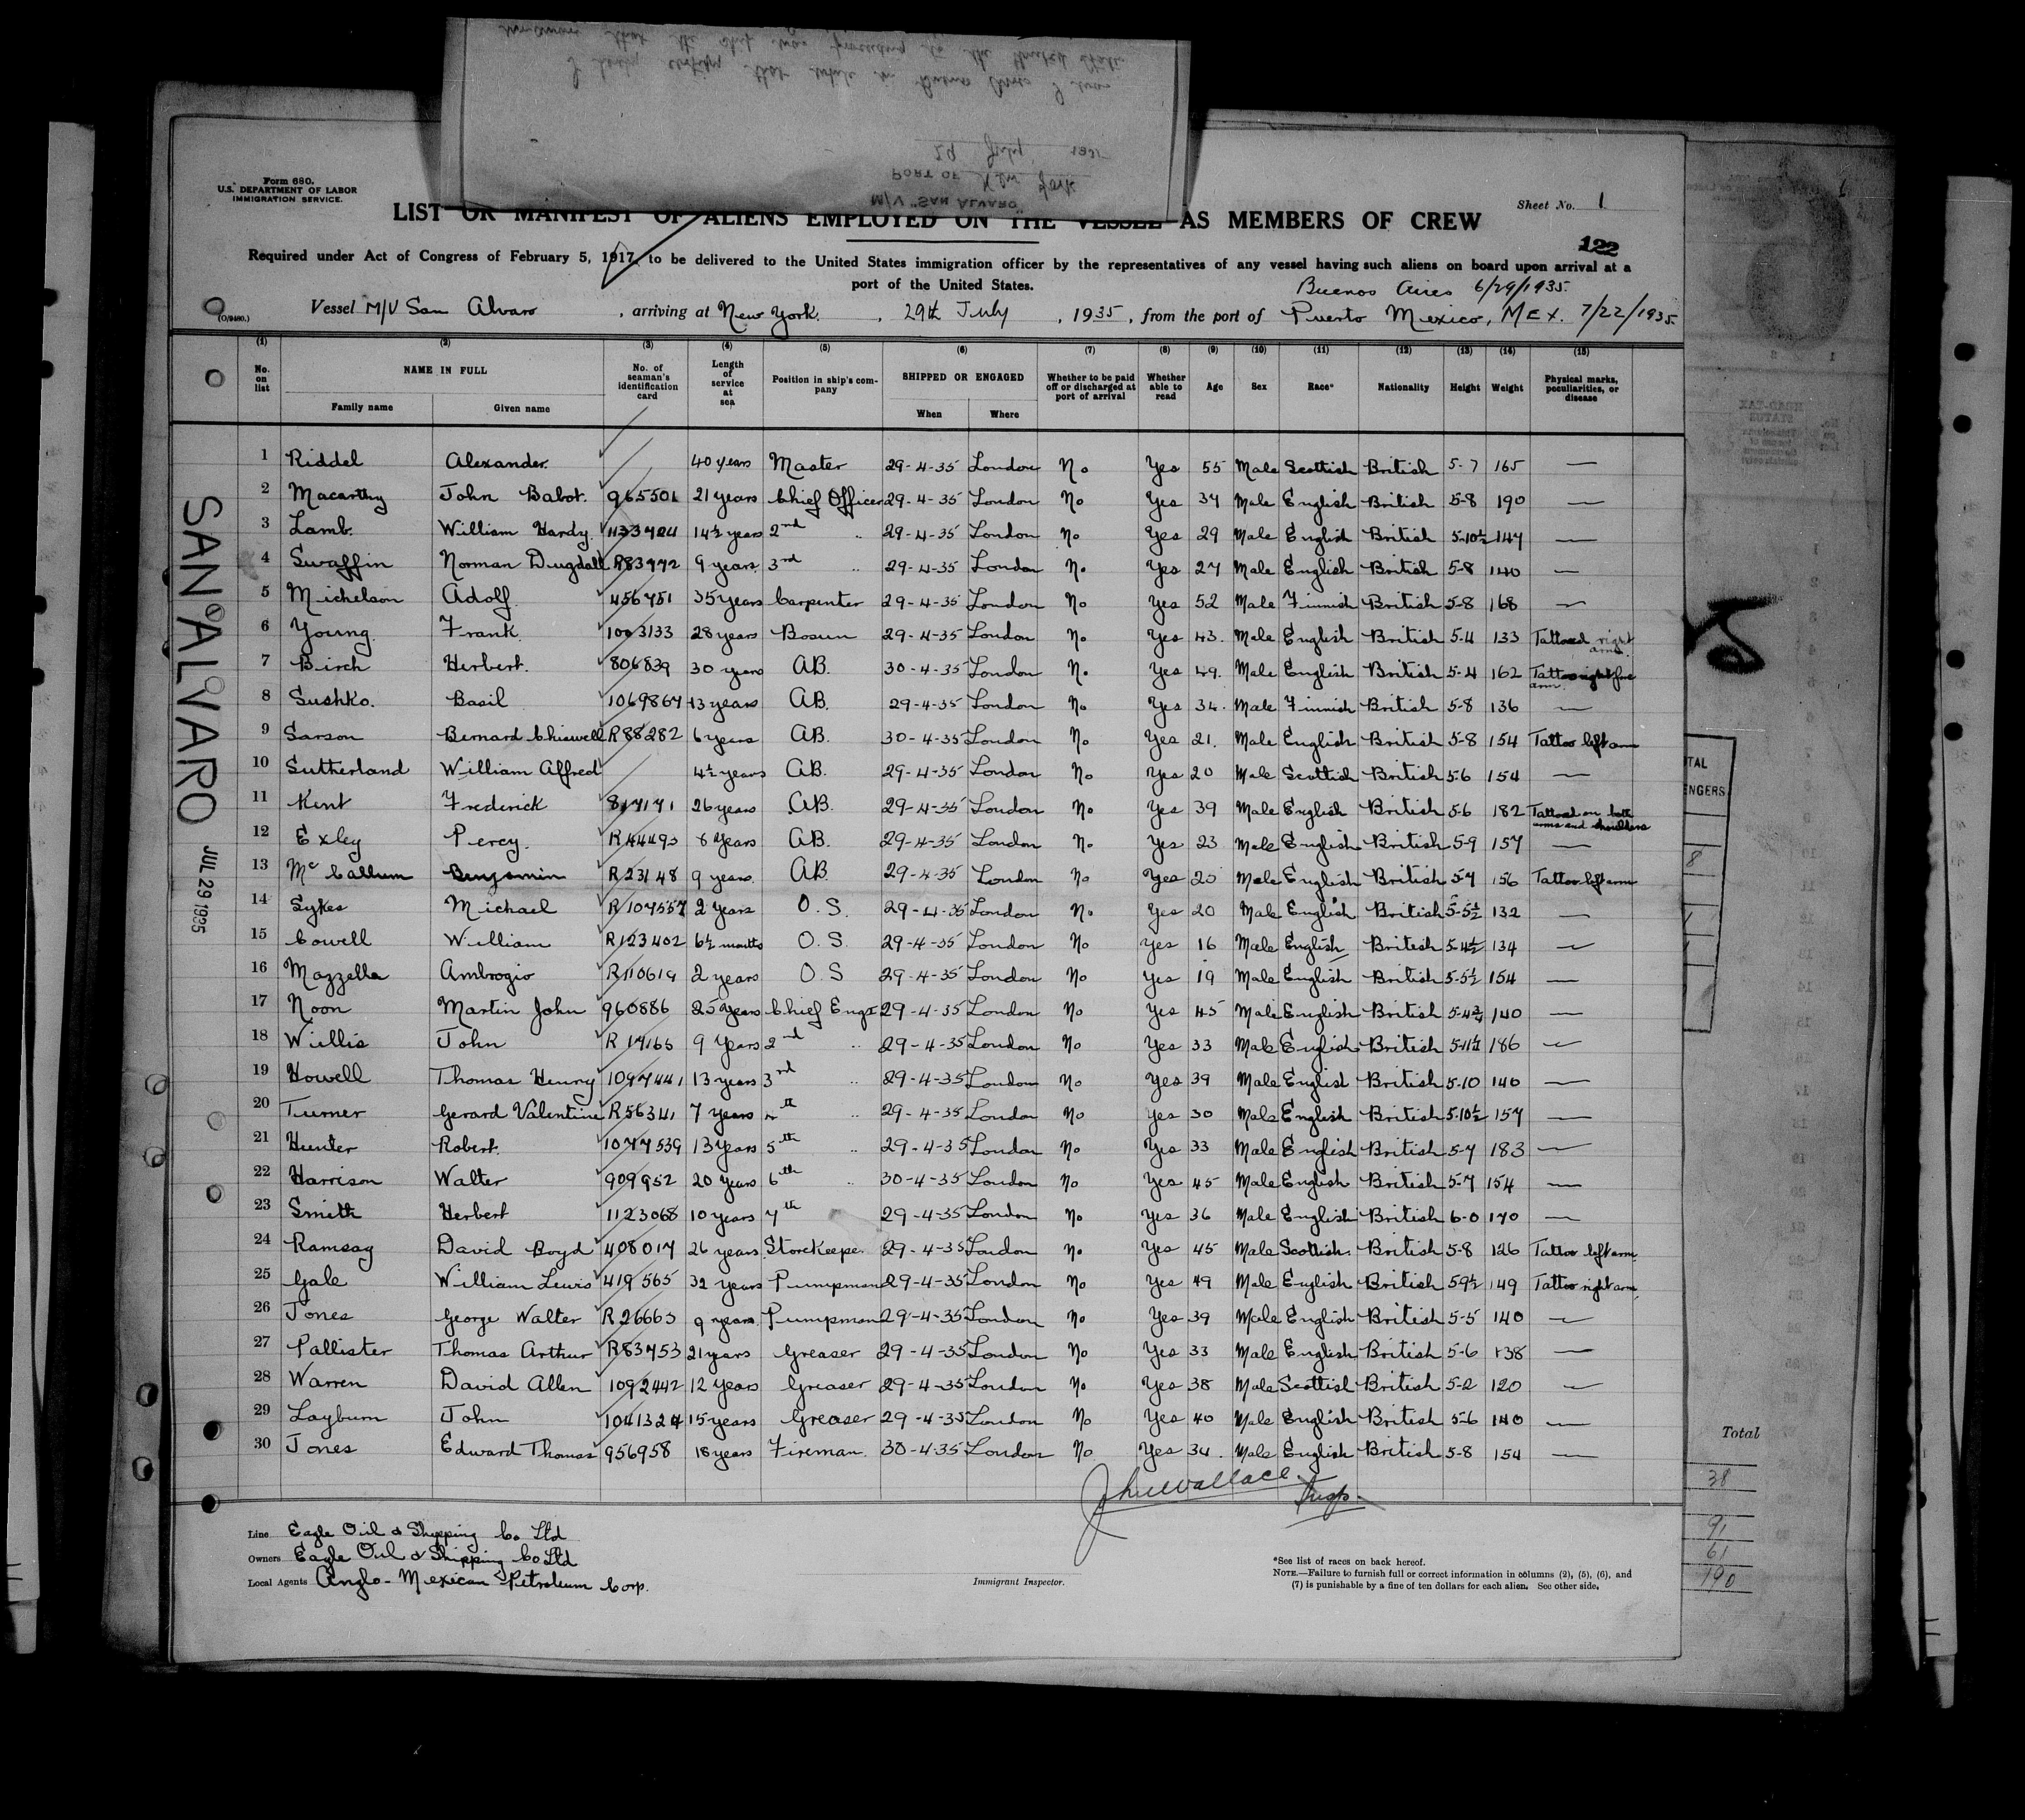 M/V "SAN ALVARO"
PORT OF New York
29 July 1935
I hereby certify that while in Buenos Aires I was
that the ship was proceeding to the United States
Form 680.
U.S. DEPARTMENT OF LABOR
IMMIGRATION SERVICE.
Sheet No. 1
LIST OR MANIFEST OF ALIENS EMPLOYED ON THE VESSEL AS MEMBERS OF CREW
122
Required under Act of Congress of February 5, 1917, to be delivered to the United States immigration officer by the representatives of any vessel having such aliens on board upon arrival at a
port of the United States.
Buenos Aires 6/29/1935.
(O/9480.)
Vessel M/V San Alvaro, arriving at New York, 29th July, 1935, from the port of Puerto Mexico, MEX. 7/22/1935.
(1) (2) (3) (4) (5) (6) (7) (8) (9) (10) (11) (12) (13) (14) (15)
No. on list NAME IN FULL Family name Given name No. of seaman's identification card Length of service at sea Position in ship's company SHIPPED OR ENGAGED When Where Whether to be paid off or discharged at port of arrival Whether able to read Age Sex Race* Nationality Height Weight Physical marks, peculiarities, or disease
1 Riddel Alexander. 40 years Master 29-4-35 London No Yes 55 Male Scottish British 5-7 165 —
2 Macarthy John Babot. 965501 21 years Chief Officer 29-4-35 London No Yes 37 Male English British 5-8 190 —
3 Lamb. William Hardy. 14½ years 2nd .. 29-4-35 London No Yes 29 Male English British 5-10½ 147 —
4 Swaffin Norman Dugdall R83772 9 years 3rd .. 29-4-35 London No Yes 27 Male English British 5-8 140 —
5 Michelson Adolf. 456751 35 years Carpenter 29-4-35 London No Yes 52 Male Finnish British 5-8 168 —
6 Young. Frank. 1003133 28 years Bosun 29-4-35 London No Yes 43. Male English British 5-4 133 Tattooed right arm.
7 Birch Herbert. 806839 30 years AB. 30-4-35 London No Yes 49. Male English British 5-4 162 Tattoo right fore arm
8 Sushko. Basil 1069867 13 years AB. 29-4-35 London No Yes 34. Male Finnish British 5-8 136 —
9 Sarson Bernard Chiswell R88282 6 years AB. 30-4-35 London No Yes 21. Male English British 5-8 154 Tattoo left arm
10 Sutherland William Alfred 4½ years AB. 29-4-35 London No Yes 20 Male Scottish British 5-6 154 —
11 Kent Frederick 817171 26 years AB. 29-4-35 London No Yes 39 Male English British 5-6 182 Tattooed on both arms and shoulders
12 Exley Percy. R44493 8 years AB. 29-4-35 London No Yes 23 Male English British 5-9 157 —
13 McCallum Benjamin R23148 9 years. AB 29-4-35 London No Yes Male English British 5-7 156 Tattoo left arm
14 Sykes Michael R107557 2 years O.S. 29-4-35 London No Yes 20 Male English British 5-5½ 132 —
15 Cowell William R123402 6½ months O.S. 29-4-35 London No Yes 16 Male English British 5-4½ 134 —
16 Mazzella Ambrogio R110619 2 years O.S 29-4-35 London No Yes 19 Male English British 5-5½ 154 —
17 Noon Martin John 960886 25 years Chief Engr 29-4-35 London No Yes 45 Male English British 5-4¾ 140 —
18 Willis John R17165 9 years 2nd .. 29-4-35 London No Yes 33 Male English British 186 —
19 Howell Thomas Henry 1097441 13 years 3rd .. 29-4-35 London No Yes 39 Male English British 5-10 140 —
20 Turner Gerard Valentine R56341 7 years 4th .. 29-4-35 London No Yes 30 Male English British 5-10½ 157 —
21 Hunter Robert. 1077539 13 years 5th .. 29-4-35 London No Yes 33 Male English British 5-7 183 —
22 Harrison Walter 909952 20 years 6th .. 30-4-35 London No Yes 45 Male English British 5-7 154 —
23 Smith Herbert 1123068 10 years 7th 29-4-35 London No Yes 36 Male English British 6-0 170 —
24 Ramsay David Boyd 408017 26 years Storekeeper 29-4-35 London No Yes 45 Male Scottish. British 5-8 126 Tattoo left arm.
25 Gale William Lewis 419565 32 years Pumpman 29-4-35 London No Yes 49 Male English British 5-9½ 149 Tattoo right arm,
26 Jones George Walter R26663 9 years. Pumpman 29-4-35 London No Yes 39 Male English British 5-5 140 —
27 Pallister Thomas Arthur R83753 21 years Greaser 29-4-35 London No Yes 33 Male English British 5-6 138 —
28 Warren David Allen 1092442 12 years Greaser 29-4-35 London No Yes 38 Male Scottish British 5-2 120 —
29 Layburn John 1041324 15 years Greaser 29-4-35 London No Yes 40 Male English British 5-6 140 —
30 Jones Edward Thomas 956958 18 years Fireman. 30-4-35 London No Yes 34. Male English British 5-8 154 —
John Wallace. Insp.
Line Eagle Oil & Shipping Co Ltd
Owners Eagle Oil & Shipping Co Ltd
Local Agents Anglo-Mexican Petroleum Corp.
Immigrant Inspector.
*See list of races on back hereof.
NOTE.—Failure to furnish full or correct information in columns (2), (5), (6), and
(7) is punishable by a fine of ten dollars for each alien. See other side.
SAN ALVARO JUL 29 1935
Total
38
91
61
190